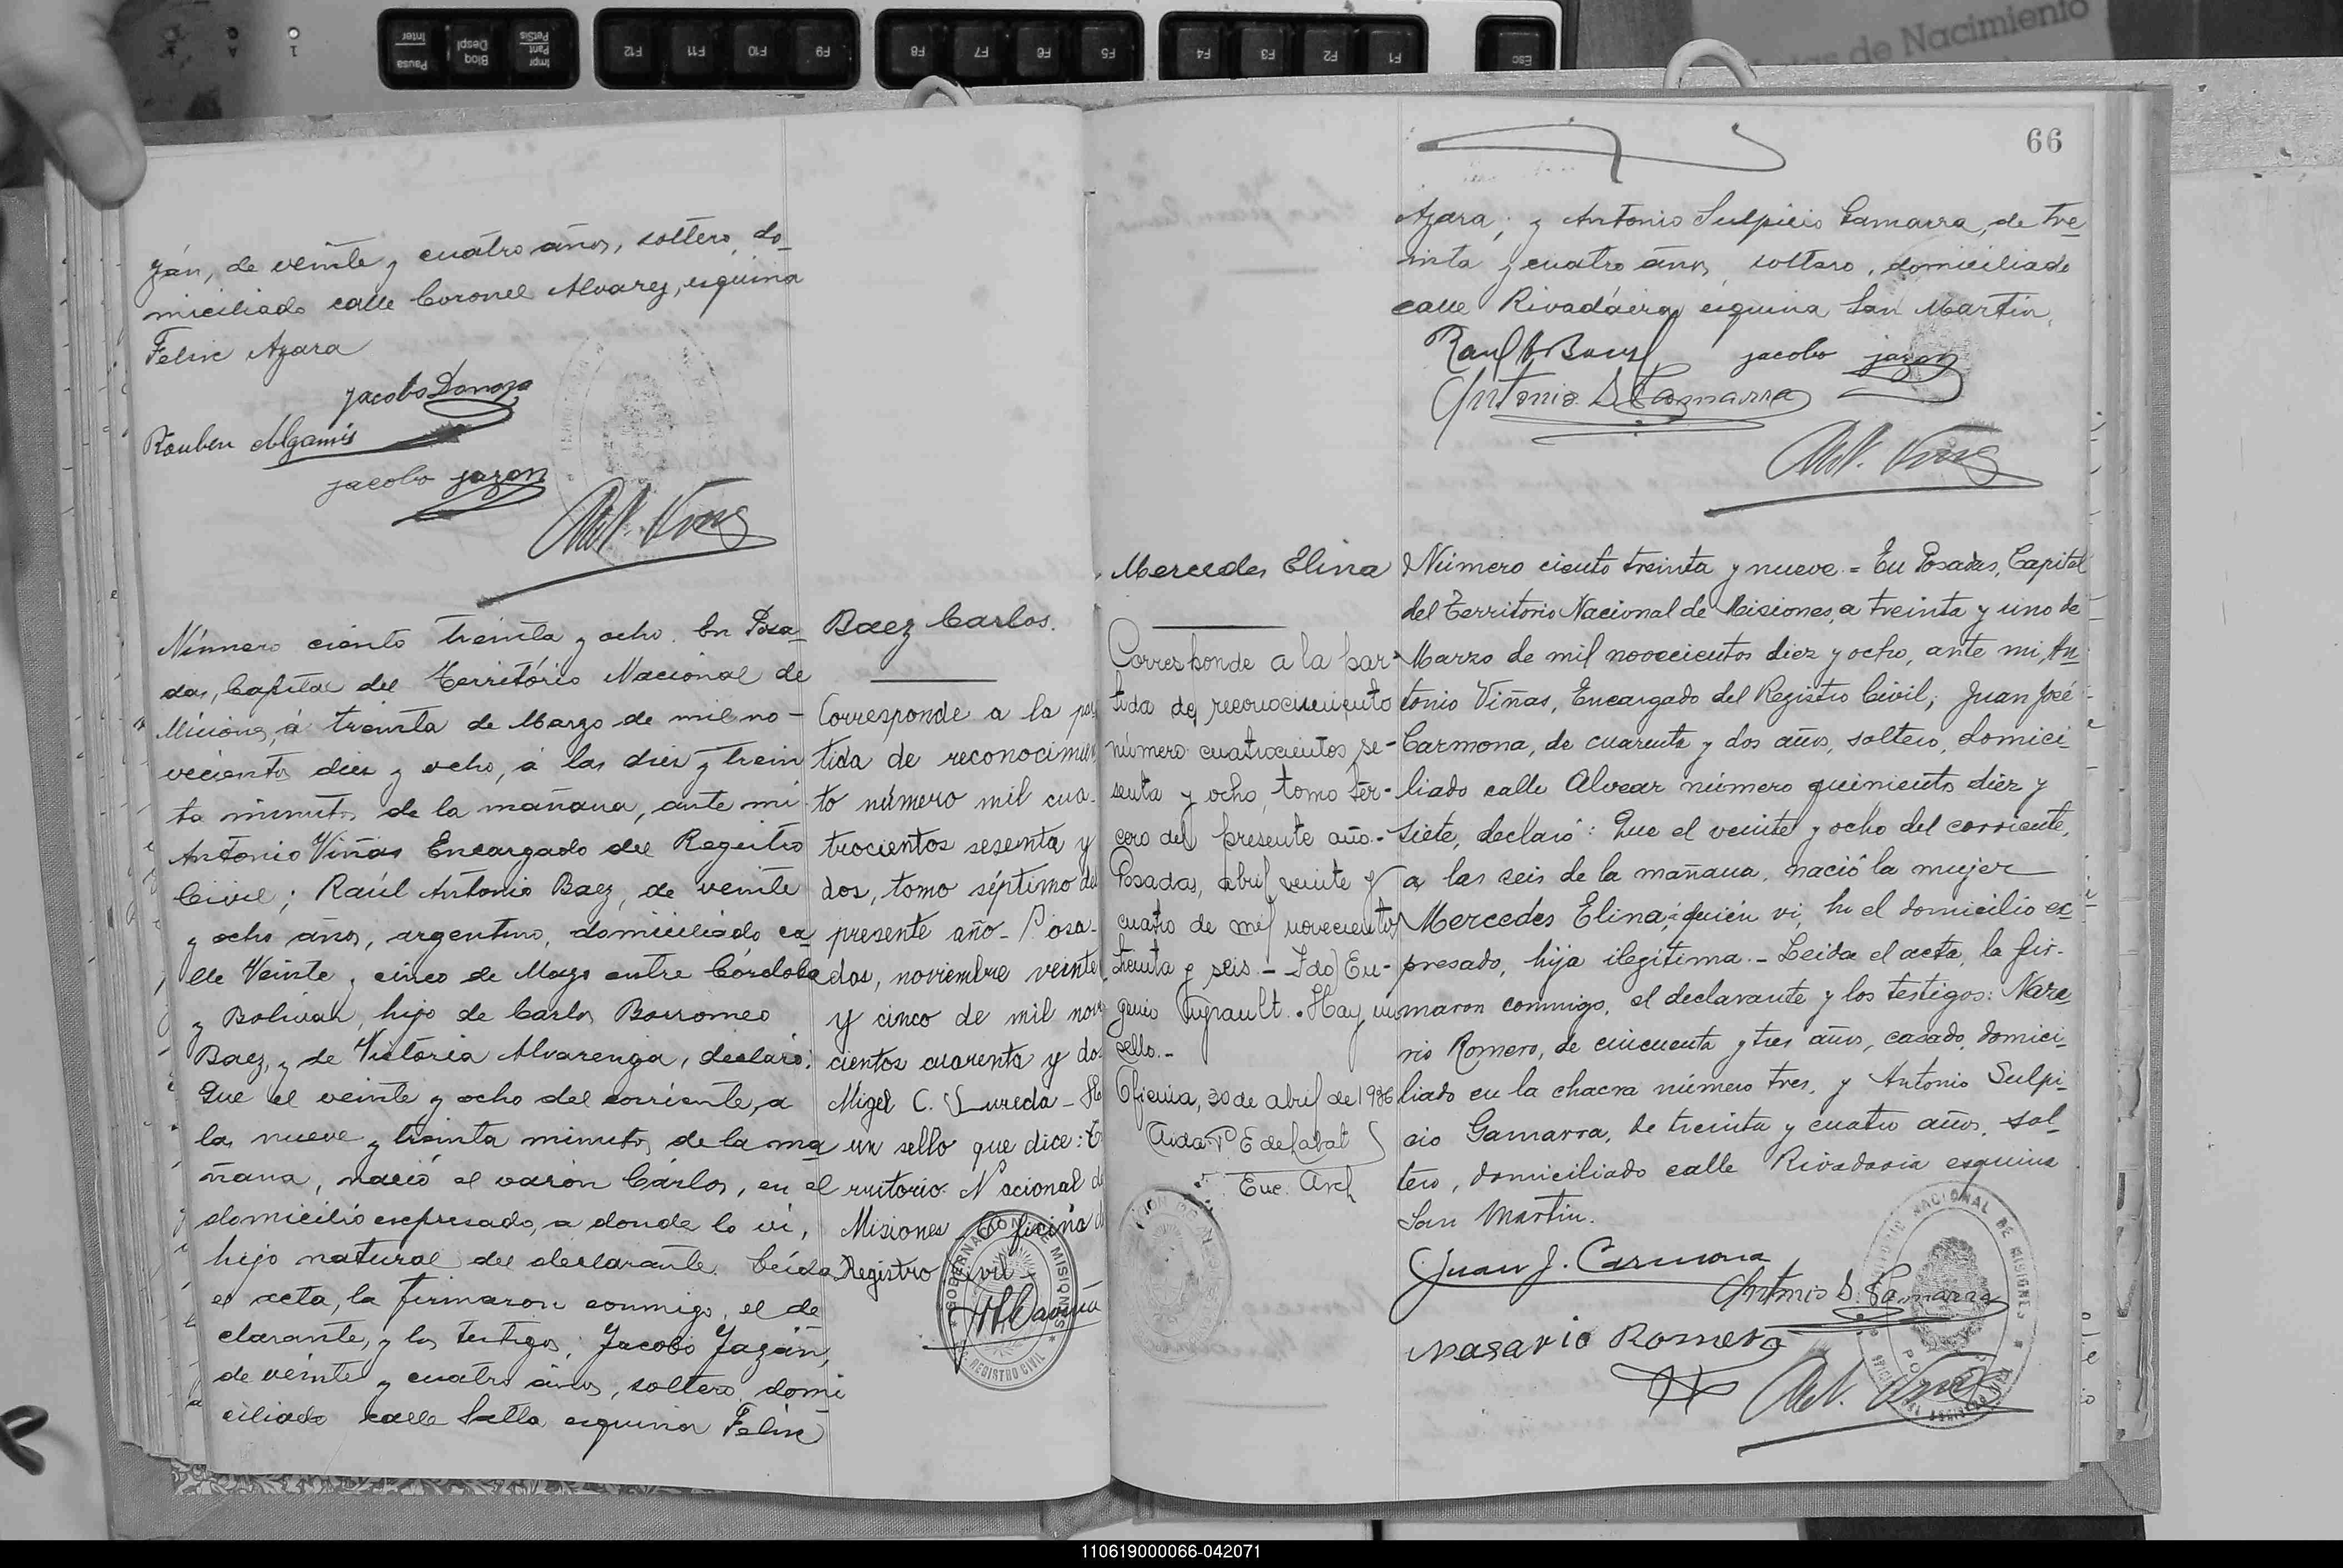 66
yán, de veinte y cuatro años, soltero, do-
miciliado calle Coronel Alvarez, esquina
Felix Azara
jacobo
Rouben
jacobo jazan
Número ciento treinta y ocho. En Posa-
das, Capital del Território Nacional de
Misiones, á treinta de Marzo de mil no-
vecientos diez y ocho, á las diez y trein
ta minutos de la mañana, ante mi
Antonio Viñas Encargado del Registro
Civil; Raúl Antonio Baez, de veinte
y ocho años, argentino, domiciliado ca
lle Veinte y cinco de Mayo entre Córdoba
y Bolivar, hijo de Carlos Borromeo
Baez, y de Victória Alvarenga, declaró:
Que el veinte y ocho del corriente, a
las nueve y treinta minutos de la ma
ñana, nació el varón Cárlos, en el
domicilio expresado, a donde lo vi,
hijo natural del declarante. Leida
el acta, la firmaron conmigo, el de
clarante, y los testigos: Jacobo Jazán,
de veinte y cuatro años, soltero, domi
ciliado calle Salta esquina Felix
Baez Carlos.
Corresponde a la par
tida de reconocimien
to número mil cua-
trocientos sesenta y
dos, tomo séptimo del
presente año - Posa-
das, noviembre veinte
y cinco de mil nove
cientos cuarenta y dos
Migel C. Lureda - Ha
un sello que dice: Te
rritorio Nacional de
Misiones Oficina d
Registro Civil -
GOBERNACION DE MISIONES
REGISTRO CIVIL
Azara; y Antonio Sulpicio Gamarra, de tre
inta y cuatro años, soltero, domiciliado
calle Rivadávia esquina San Martin.
Raul A Baez jacobo jazan
Antonio S. Gamarra
Mercedes Elina
Corresponde a la par-
tida de reconocimiento
número cuatrocientos se-
senta y ocho, tomo ter-
cero del presente año.-
Posadas, abril veinte y
cuatro de mil novecientos
treinta y seis - Fdo) Eu-
genio . Hay un
sello.-
Oficina, 30 de abril de 1936
Enc. Arch
Número ciento treinta y nueve = En Posadas, Capital
del Territorio Nacional de Misiones, a treinta y uno de
Marzo de mil novecientos diez y ocho, ante mi, An
tonio Viñas, Encargado del Registro Civil; Juan José
Carmona, de cuarenta y dos años, soltero, domici
liado calle Alvear número quinientos diez y
siete, declaró: Que el veinte y ocho del corriente,
a las seis de la mañana, nació la mujer
Mercedes Elina, á quién vi, en el domicilio ex
presado, hija ilegitima.- Leida el acta, la fir-
maron conmigo, el declarante y los testigos: Naza
rio Romero, de cincuenta y tres años, casado, domici-
liado en la chacra número tres, y Antonio Sulpi-
cio Gamarra, de treinta y cuatro años, sol-
tero, domiciliado calle Rivadavia esquina
San Martin.
Juan J. Carmona
Antonio S. Gamarra
Nasario Romero
110619000066-042071